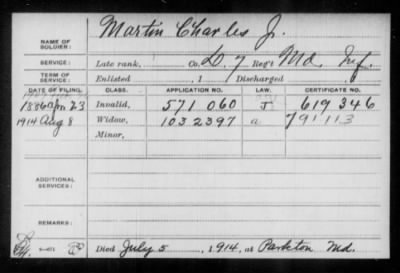 NAME OF SOLDIER: Martin Charles J.
SERVICE: Late rank, Co. D, 7 Reg't Md. Inf.
TERM OF SERVICE: Enlisted , 1 Discharged , 1
DATE OF FILING. CLASS. APPLICATION NO. LAW. CERTIFICATE NO.
1886 Apr 23 Invalid, 571 060 J 619 346
1914 Aug 8 Widow, 1032397 a 791113
Minor,
ADDITIONAL SERVICES:
REMARKS:
Died July 5, 1914, at Parkton Md.